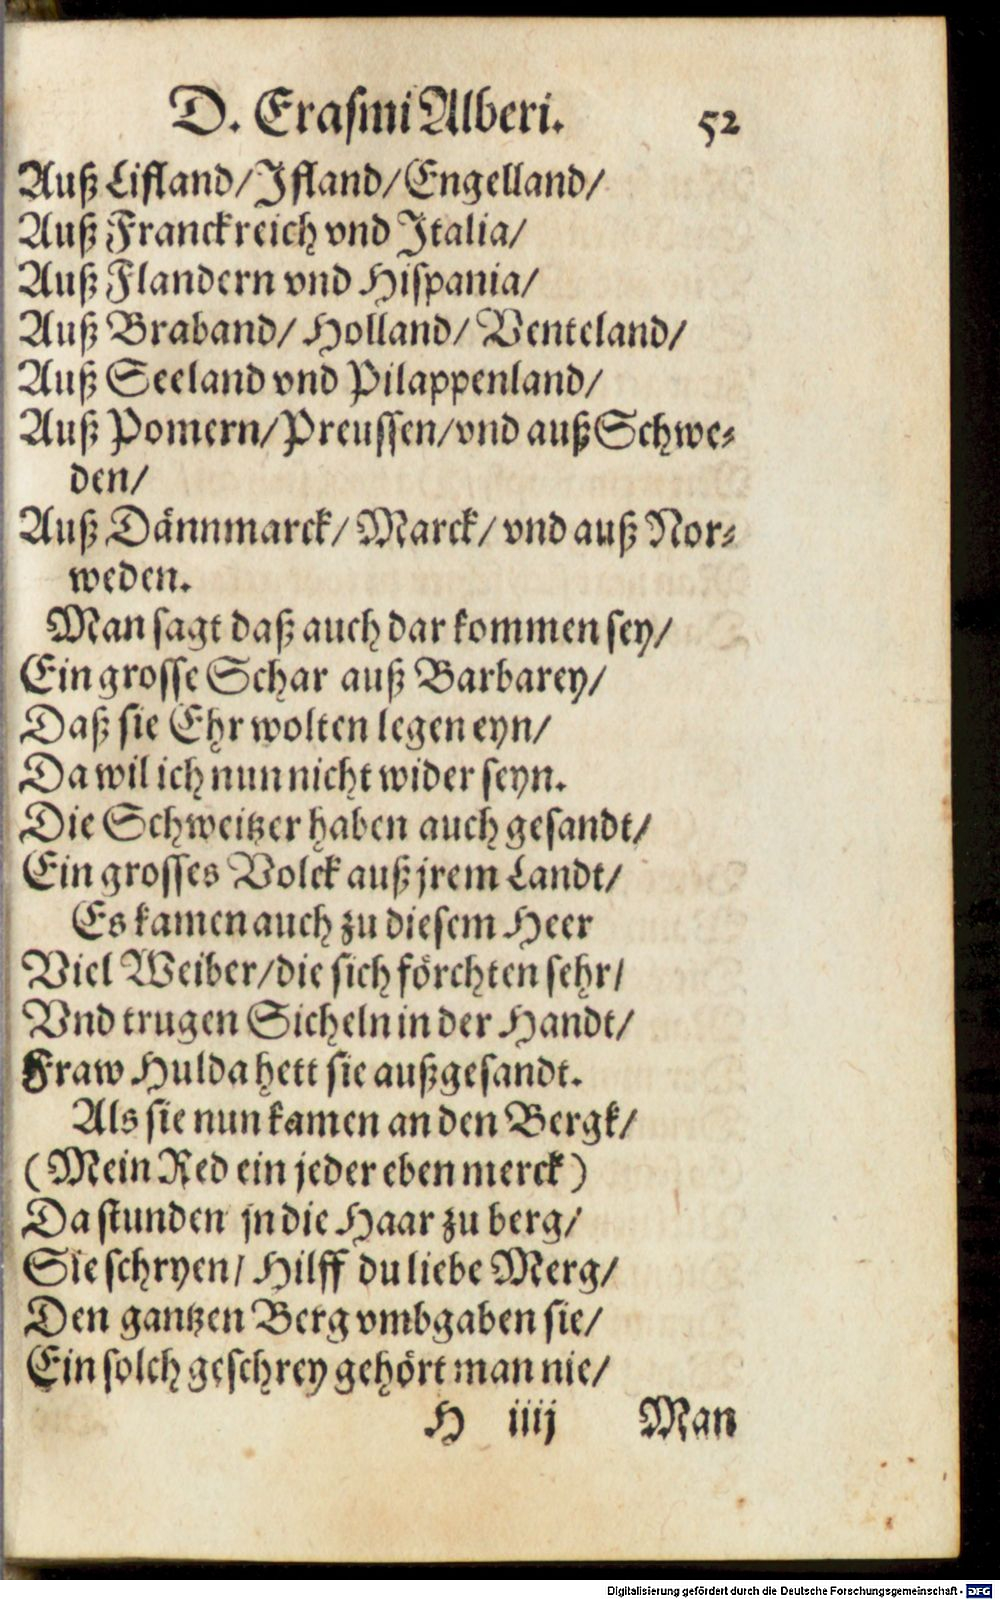 D. Erasmi Alberi. 52
Auß Lifland/Jfland/Engelland/
Auß Franckreich vnd Jtalia/
Auß Flandern vnd Hispania/
Auß Braband/ Holland/ Venteland/
Auß Seeland vnd Pilappenland/
Auß Pomern/Preussen/vnd auß Schwe-
den/
Auß Dännmarck/ Marck/ vnd auß Nor-
weden.
Man sagt daß auch dar kommen sey/
Ein grosse Schar auß Barbarey/
Daß sie Ehr wolten legen eyn/
Da wil ich nun nicht wider seyn.
Die Schweitzer haben auch gesandt/
Ein grosses Volck auß jrem Landt/
Es kamen auch zu diesem Heer
Viel Weiber/die sich förchten sehr/
Vnd trugen Sicheln in der Handt/
Fraw Hulda hett sie außgesandt.
Als sie nun kamen an den Bergk/
(Mein Red ein jeder eben merck)
Da stunden jn die Haar zu berg/
Sie schryen/ Hilff du liebe Merg/
Den gantzen Berg vmbgaben sie/
Ein solch geschrey gehört man nie/
H iiij Man
Digitalisierung gefördert durch die Deutsche Forschungsgemeinschaft - DFG